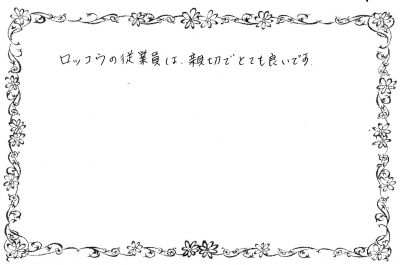 ロッコウの従業員は、親切でとても良いです。